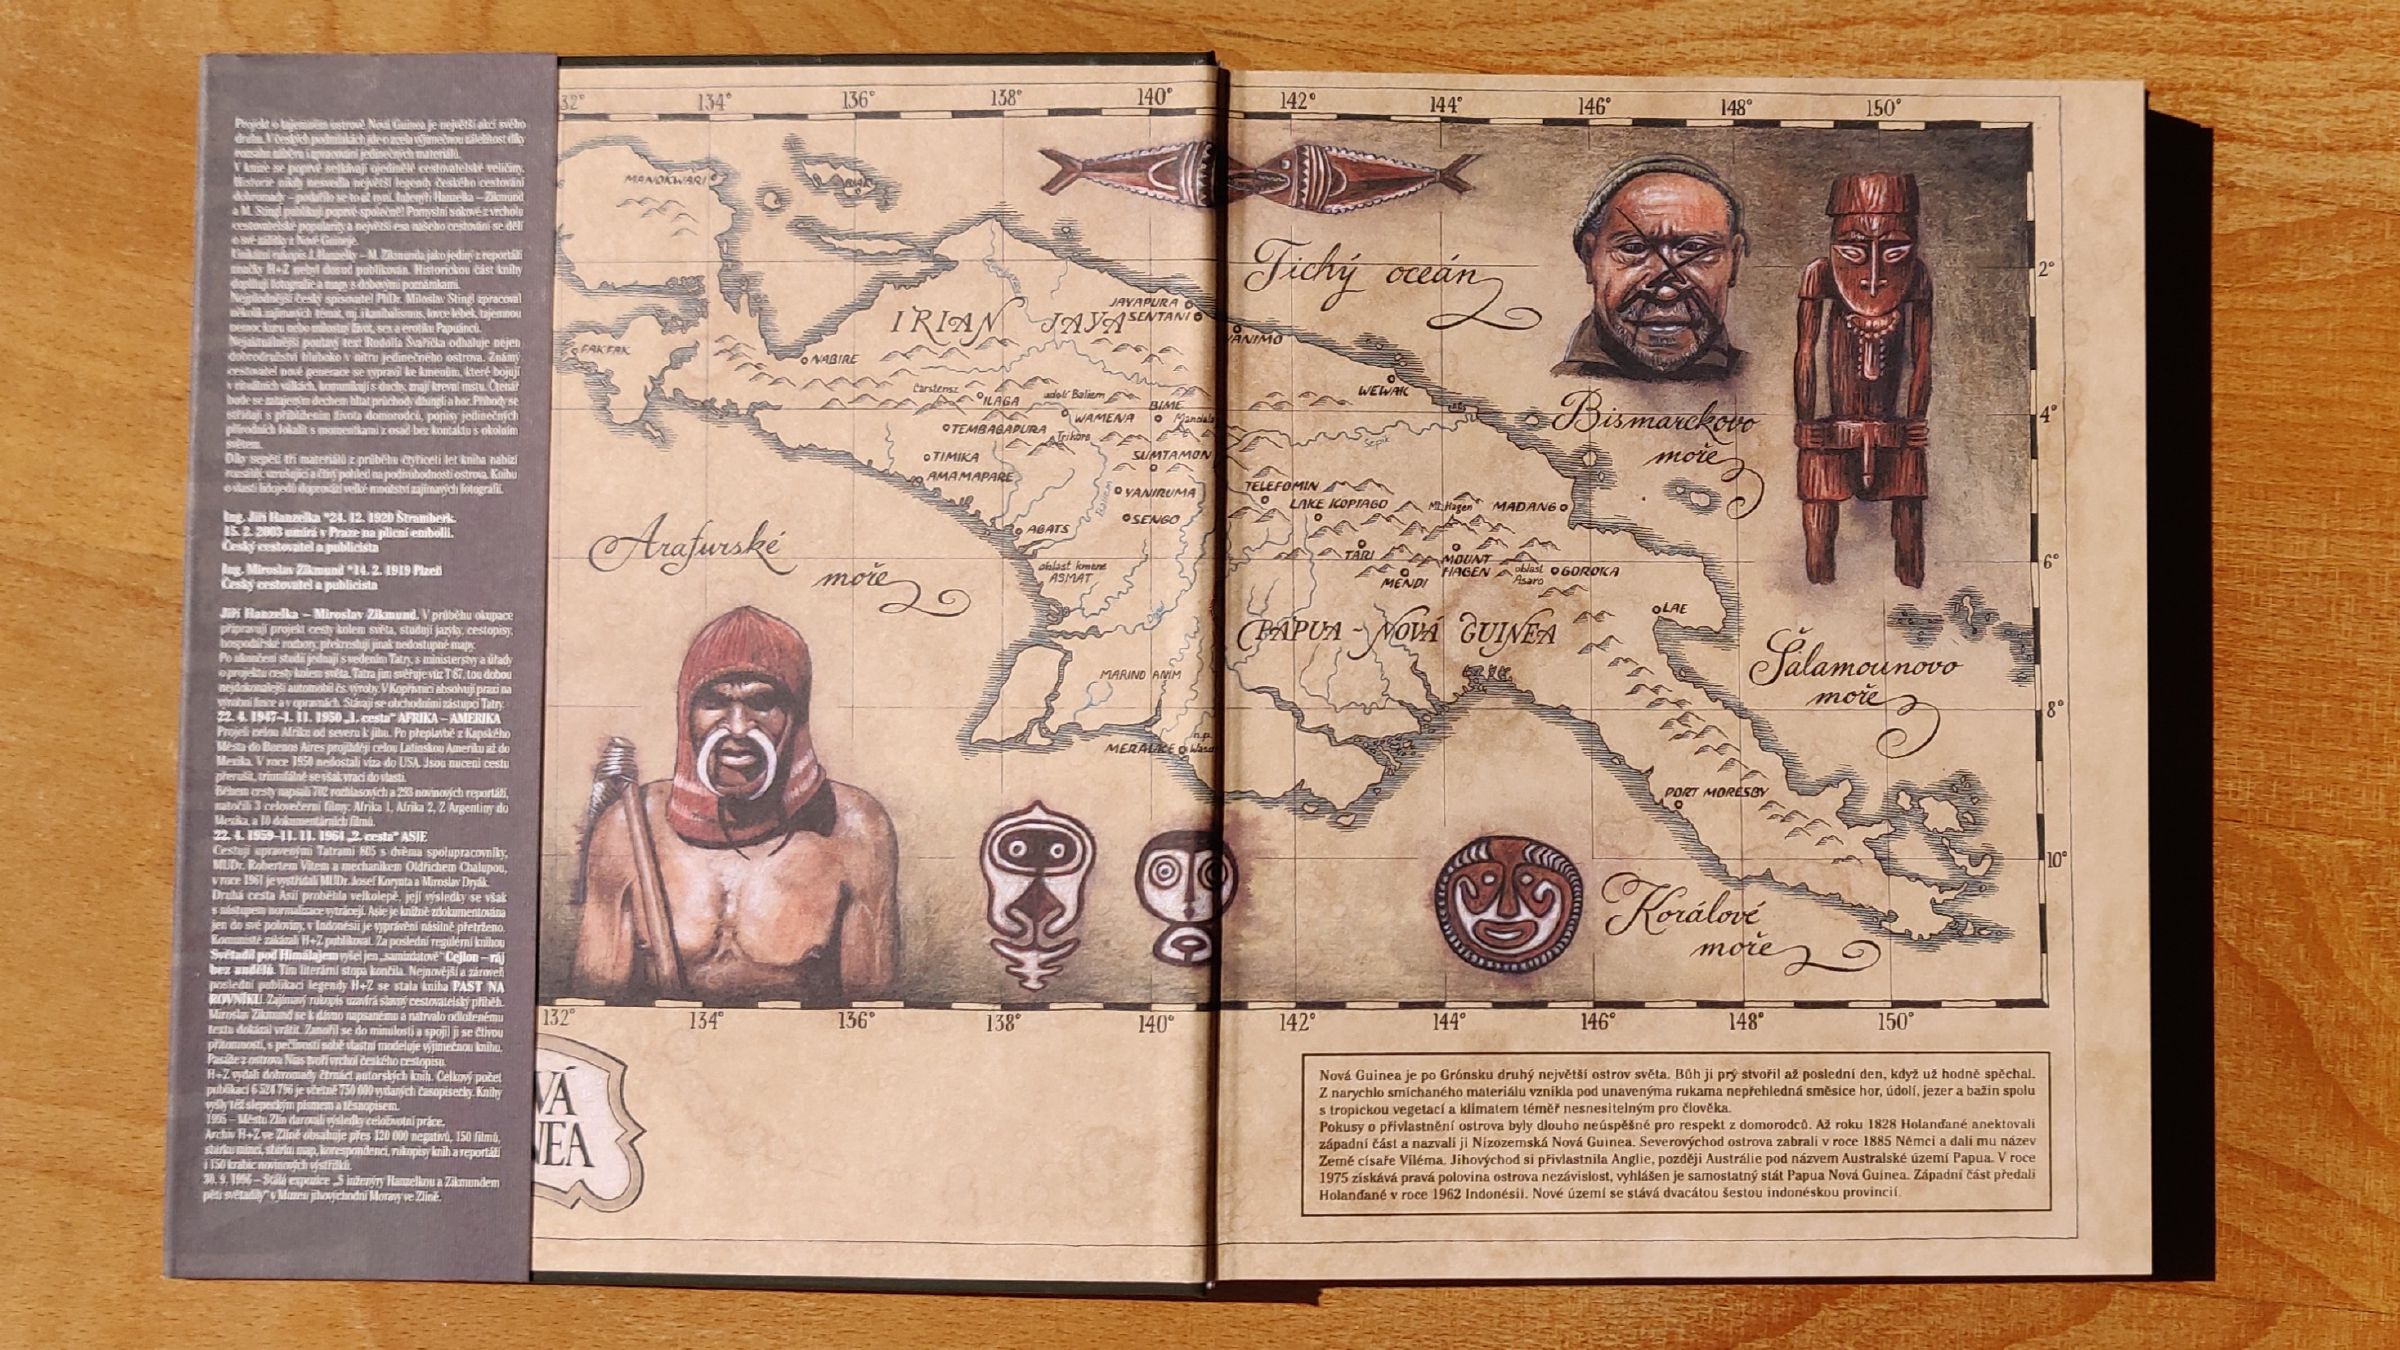 Projekt o tajemném ostrově Nová Guinea je největší akcí svého
druhu. V českých podmínkách jde o zcela výjimečnou záležitost díky
rozsahu záběru i zpracování jedinečných materiálů.
V knize se poprvé setkávají ojedinělé cestovatelské veličiny.
Historie nikdy nesvedla největší legendy českého cestování
dohromady – podařilo se to až nyní. Inženýři Hanzelka – Zikmund
a M. Stingl publikují poprvé společně! Pomyslní sokové z vrcholu
cestovatelské popularity a největší esa našeho cestování se dělí
o své zážitky z Nové Guineje.
Unikátní rukopis J. Hanzelky – M. Zikmunda jako jediný z reportáží
značky H+Z nebyl dosud publikován. Historickou část knihy
doplňují fotografie a mapy s dobovými poznámkami.
Nejplodnější český spisovatel PhDr. Miloslav Stingl zpracoval
několik zajímavých témat, mj. i kanibalismus, lovce lebek, tajemnou
nemoc kuru nebo milostný život, sex a erotiku Papuánců.
Nejaktuálnější poutavý text Rudolfa Švaříčka odhaluje nejen
dobrodružství hluboko v nitru jedinečného ostrova. Známý
cestovatel nové generace se vypravil ke kmenům, které bojují
v rituálních válkách, komunikují s duchy, znají krevní mstu. Čtenář
bude se zatajeným dechem hltat průchody džunglí a hor. Příhody se
střídají s přiblížením života domorodců, popisy jedinečných
přírodních lokalit s momentkami z osad bez kontaktu s okolním
světem.
Díky sepětí tří materiálů z průběhu čtyřiceti let kniha nabízí
rozsáhlý, vzrušující a čtivý pohled na podivuhodnosti ostrova. Knihu
o vlasti lidojedů doprovází velké množství zajímavých fotografií.
Ing. Jiří Hanzelka *24. 12. 1920 Štramberk.
15. 2. 2003 umírá v Praze na plicní embolii.
Český cestovatel a publicista
Ing. Miroslav Zikmund *14. 2. 1919 Plzeň
Český cestovatel a publicista
Jiří Hanzelka – Miroslav Zikmund. V průběhu okupace
připravují projekt cesty kolem světa, studují jazyky, cestopisy,
hospodářské rozbory, překreslují jinak nedostupné mapy.
Po ukončení studií jednají s vedením Tatry, s ministerstvy a úřady
o projektu cesty kolem světa. Tatra jim svěřuje vůz T 87, tou dobou
nejdokonalejší automobil čs. výroby. V Kopřivnici absolvují praxi na
výrobní lince a v opravnách. Stávají se obchodními zástupci Tatry.
22. 4. 1947–1. 11. 1950 „1. cesta“ AFRIKA – AMERIKA
Projeli celou Afriku od severu k jihu. Po přeplavbě z Kapského
Města do Buenos Aires projíždějí celou Latinskou Ameriku až do
Mexika. V roce 1950 nedostali víza do USA. Jsou nuceni cestu
přerušit, triumfálně se však vrací do vlasti.
Během cesty napsali 702 rozhlasových a 293 novinových reportáží,
natočili 3 celovečerní filmy: Afrika 1, Afrika 2, Z Argentiny do
Mexika, a 10 dokumentárních filmů.
22. 4. 1959–11. 11. 1964 „2. cesta“ ASIE
Cestují upravenými Tatrami 805 s dvěma spolupracovníky,
MUDr. Robertem Vítem a mechanikem Oldřichem Chalupou,
v roce 1961 je vystřídali MUDr. Josef Korynta a Miroslav Dryák.
Druhá cesta Asií proběhla velkolepě, její výsledky se však
s nástupem normalizace vytrácejí. Asie je knižně zdokumentována
jen do své poloviny, v Indonésii je vyprávění násilně přetrženo.
Komunisté zakázali H+Z publikovat. Za poslední regulérní knihou
Světadíl pod Himálajem vyšel jen „samizdatově“ Cejlon – ráj
bez andělů. Tím literární stopa končila. Nejnovější a zároveň
poslední publikací legendy H+Z se stala kniha PAST NA
ROVNÍKU. Zajímavý rukopis uzavírá slavný cestovatelský příběh.
Miroslav Zikmund se k dávno napsanému a natrvalo odloženému
textu dokázal vrátit. Zanořil se do minulosti a spojil ji se čtivou
přítomností, s pečlivostí sobě vlastní modeluje výjimečnou knihu.
Pasáže z ostrova Nias tvoří vrchol českého cestopisu.
H+Z vydali dohromady čtrnáct autorských knih. Celkový počet
publikací 6 524 796 je včetně 750 000 vydaných časopisecky. Knihy
vyšly též slepeckým písmem a těsnopisem.
1995 – Městu Zlín darovali výsledky celoživotní práce.
Archiv H+Z ve Zlíně obsahuje přes 120 000 negativů, 150 filmů,
sbírku mincí, sbírku map, korespondenci, rukopisy knih a reportáží
i 150 krabic novinových výstřižků.
30. 9. 1996 – Stálá expozice „S inženýry Hanzelkou a Zikmundem
pěti světadíly“ v Muzeu jihovýchodní Moravy ve Zlíně.
32° 134° 136° 138° 140° 142° 144° 146° 148° 150°
MANOKWARI
BIAK
Tichý oceán
2°
JAYAPURA
SENTANI
IRIAN JAYA
VANIMO
FAKFAK
NABIRE
Carstensz
ILAGA
údolí Baliem
WAMENA
BIME
Mandala
WEWAK
Sepik
Bismarckovo
moře
4°
TEMBAGAPURA
Trikora
SUMTAMON
TIMIKA
AMAMAPARE
YANIRUMA
Baliem
TELEFOMIN
LAKE KOPIAGO
Mt. Hagen
MADANG
AGATS
SENGO
Arafurské
moře
oblast kmene
ASMAT
TARI
MENDI
MOUNT
HAGEN
oblast
Asaro
GOROKA
6°
LAE
PAPUA - NOVÁ GUINEA
Šalamounovo
moře
MARIND ANIM
8°
MERAUKE
n.p.
PORT MORESBY
Korálové
moře
10°
132° 134° 136° 138° 140° 142° 144° 146° 148° 150°
VÁ
NEA
Nová Guinea je po Grónsku druhý největší ostrov světa. Bůh ji prý stvořil až poslední den, když už hodně spěchal.
Z narychlo smíchaného materiálu vznikla pod unavenýma rukama nepřehledná směsice hor, údolí, jezer a bažin spolu
s tropickou vegetací a klimatem téměř nesnesitelným pro člověka.
Pokusy o přivlastnění ostrova byly dlouho neúspěšné pro respekt z domorodců. Až roku 1828 Holanďané anektovali
západní část a nazvali ji Nizozemská Nová Guinea. Severovýchod ostrova zabrali v roce 1885 Němci a dali mu název
Země císaře Viléma. Jihovýchod si přivlastnila Anglie, později Austrálie pod názvem Australské území Papua. V roce
1975 získává pravá polovina ostrova nezávislost, vyhlášen je samostatný stát Papua Nová Guinea. Západní část předali
Holanďané v roce 1962 Indonésii. Nové území se stává dvacátou šestou indonéskou provincií.